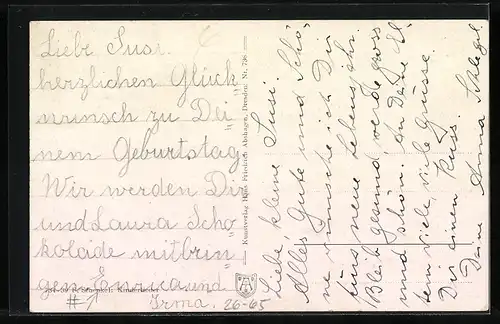 Liebe Susi.
herzlichen Glück
wunsch zu Dei
nem Geburtstag
Wir werden Dir
und Laura Scho
kolade mitbrin
gen. Enrica und
Irma.
26-65
Kunstverlag Hans Friedrich Abshagen, Dresden Nr. 796
Liebe kleine Susi.
Alles Gute und Schö
ne wünsche ich Dir
fürs neue Lebensjahr.
Bleib gesund, werde gross
und schön. An Deine El
tern viele, viele Grüsse.
Dir einen Kuss.
Deine Anna Schlegel.